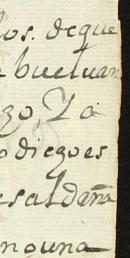 los. deque
a bueluan
zo, Ya
o diegoes
esaldaña
nguna